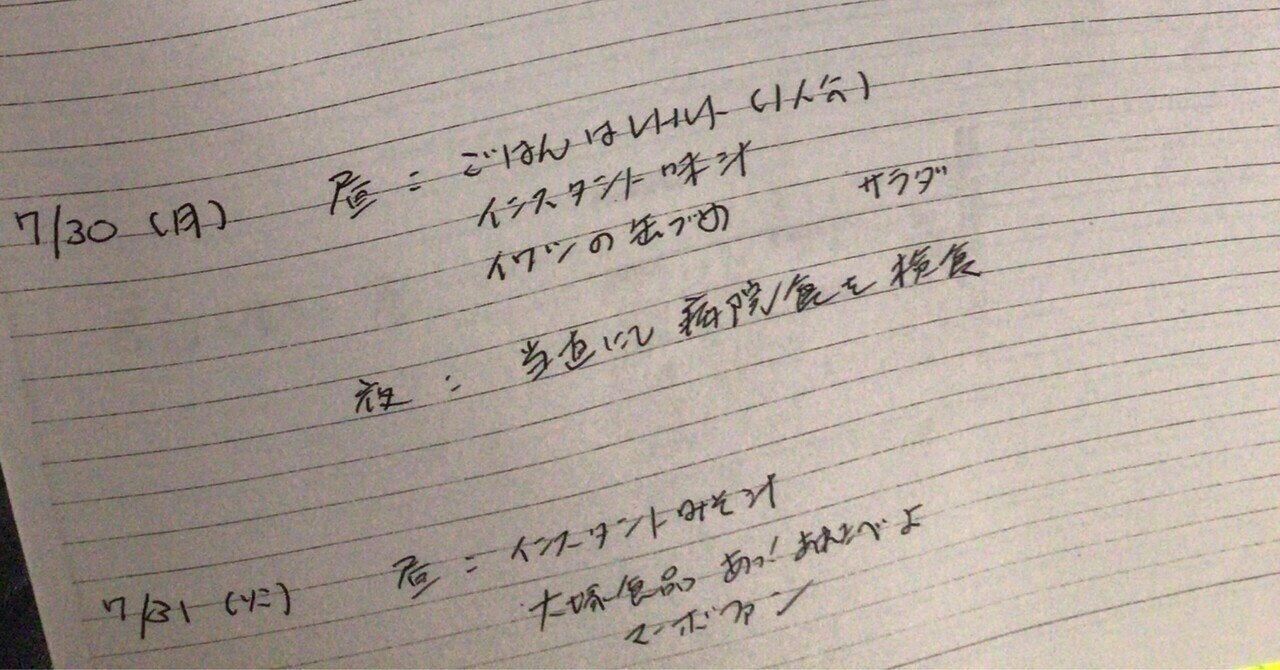 7/30(月) 昼:ごはんはレトルト(1人分)
インスタント味汁
イワシの缶づめ サラダ
夜:当直にて病院食を検食
7/31(火) 昼:インスタントみそ汁
大塚食品 あっ!あれたべよ
マーボファン